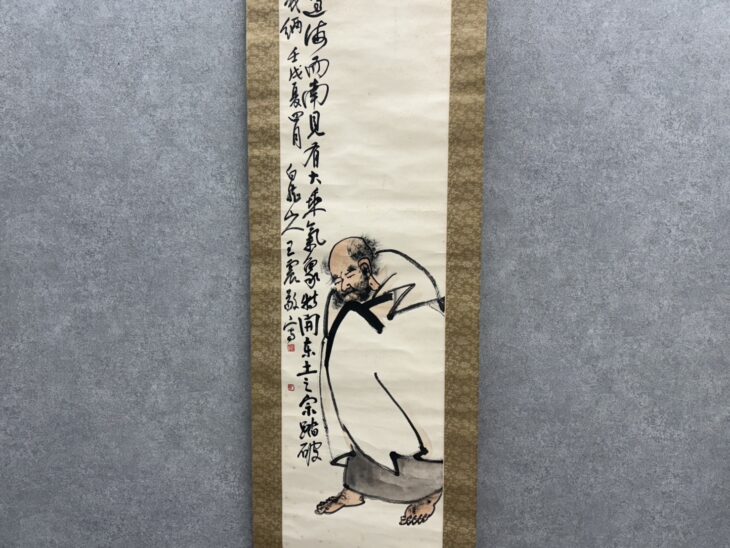 海而南見有大乘氣象特開东土之宗踏破
緉 壬戌夏四月 白龍山人王震敬寫